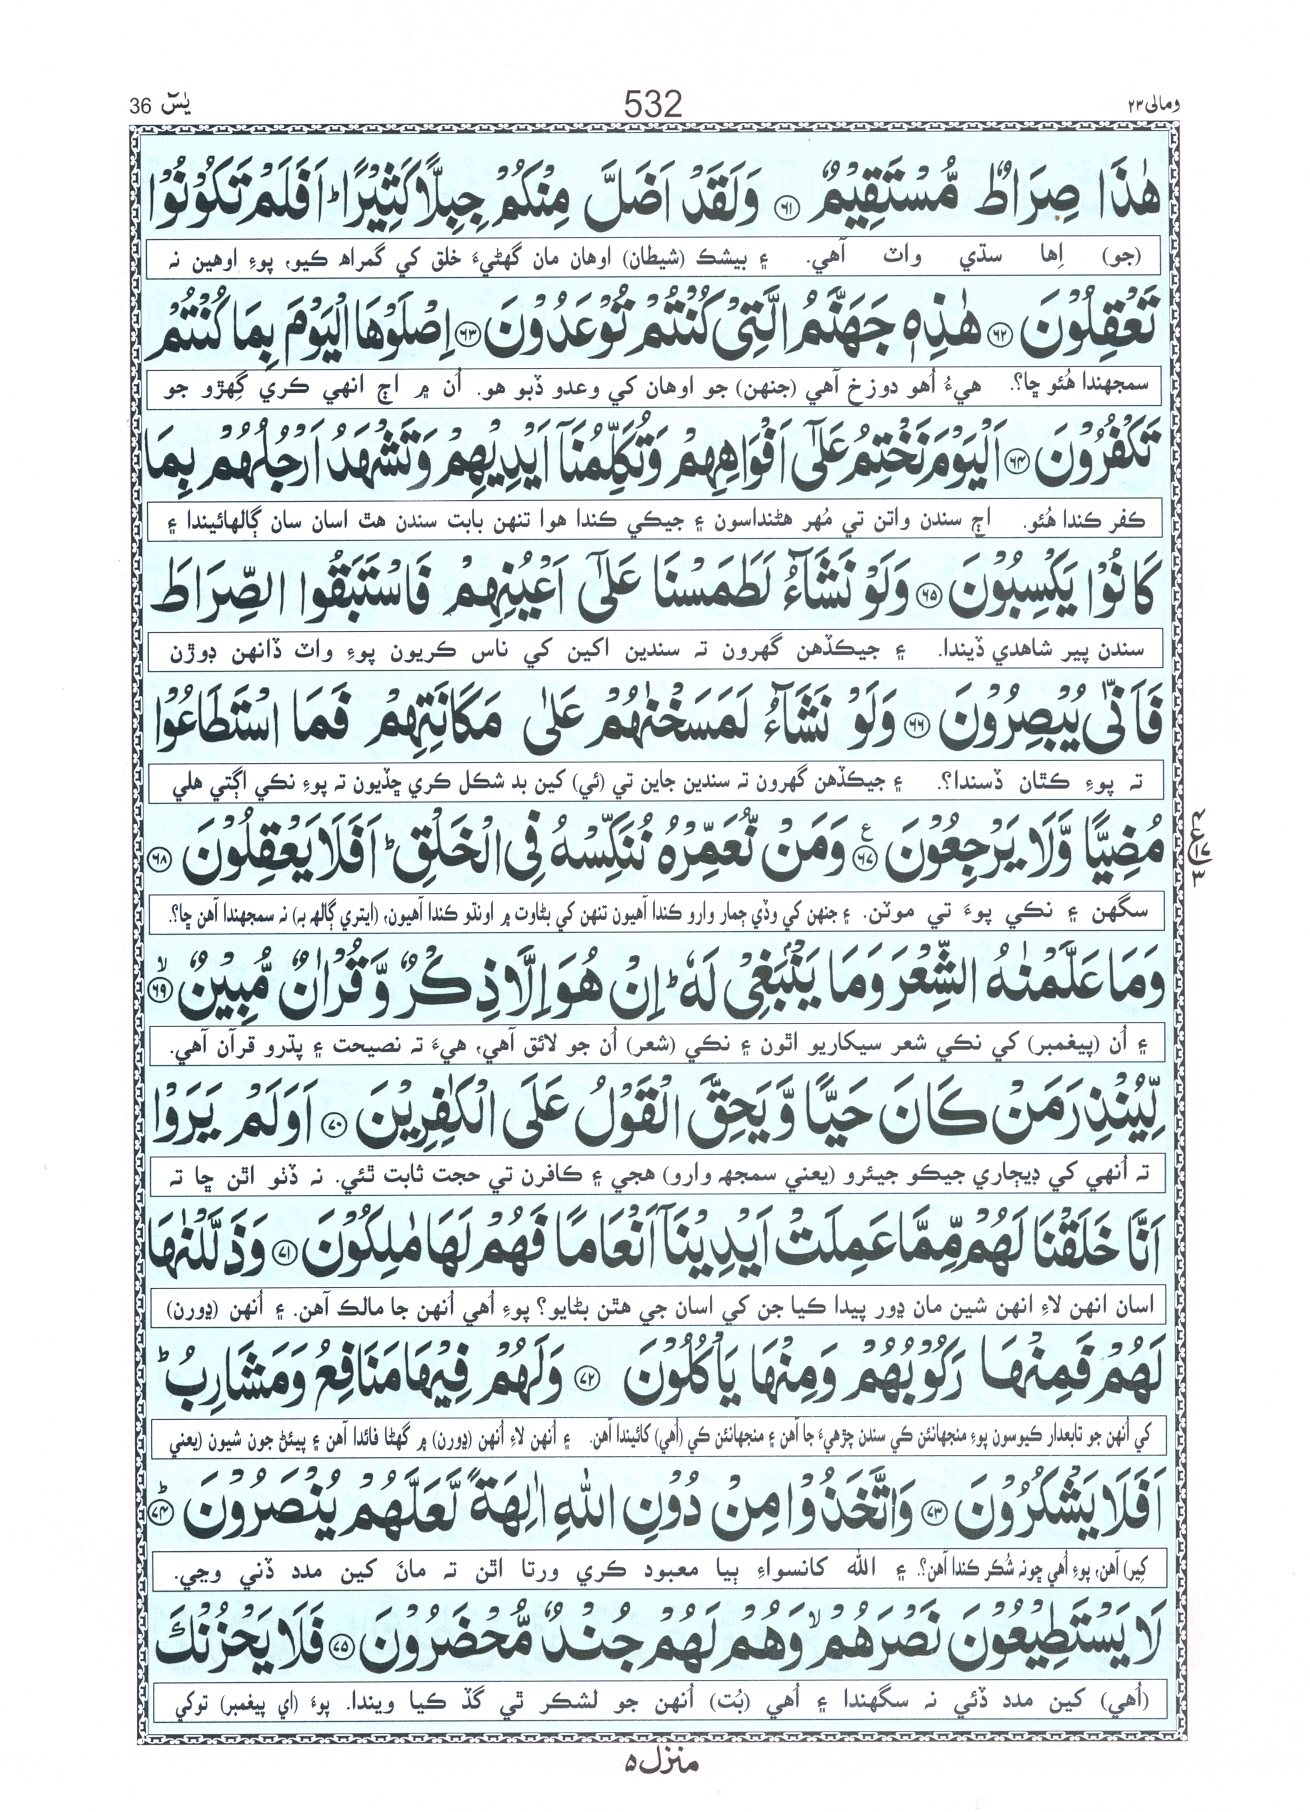 ومالی ۲۳
532
یٰسٓ 36
هٰذَا صِرَاطٌ مُّسْتَقِيْمٌ ۝۶۱ وَلَقَدْ اَضَلَّ مِنْكُمْ جِبِلًّا كَثِيْرًا ؕ اَفَلَمْ تَكُوْنُوْا
(جو) اِها سڌي واٽ آهي. ۽ بيشڪ (شيطان) اوهان مان گهڻيءَ خلق کي گمراه ڪيو، پوءِ اوهين نہ
تَعْقِلُوْنَ ۝۶۲ هٰذِهٖ جَهَنَّمُ الَّتِيْ كُنْتُمْ تُوْعَدُوْنَ ۝۶۳ اِصْلَوْهَا الْيَوْمَ بِمَا كُنْتُمْ
سمجهندا هُئو ڇا؟. هيءُ اُهو دوزخ آهي (جنهن) جو اوهان کي وعدو ڏبو هو. اُن ۾ اڄ انهي ڪري گِهڙو جو
تَكْفُرُوْنَ ۝۶۴ اَلْيَوْمَ نَخْتِمُ عَلٰٓى اَفْوَاهِهِمْ وَتُكَلِّمُنَآ اَيْدِيْهِمْ وَتَشْهَدُ اَرْجُلُهُمْ بِمَا
ڪفر ڪندا هُئو. اڄ سندن واتن تي مُهر هڻنداسون ۽ جيڪي ڪندا هوا تنهن بابت سندن هٿ اسان سان ڳالهائيندا ۽
كَانُوْا يَكْسِبُوْنَ ۝۶۵ وَلَوْ نَشَآءُ لَطَمَسْنَا عَلٰٓى اَعْيُنِهِمْ فَاسْتَبَقُوا الصِّرَاطَ
سندن پير شاهدي ڏيندا. ۽ جيڪڏهن گهرون تہ سندين اکين کي ناس ڪريون پوءِ واٽ ڏانهن ڊوڙن
فَاَنّٰى يُبْصِرُوْنَ ۝۶۶ وَلَوْ نَشَآءُ لَمَسَخْنٰهُمْ عَلٰى مَكَانَتِهِمْ فَمَا اسْتَطَاعُوْا
تہ پوءِ ڪٿان ڏسندا؟. ۽ جيڪڏهن گهرون تہ سندين جاين تي (ئي) کين بد شڪل ڪري ڇڏيون تہ پوءِ نڪي اڳتي هلي
مُضِيًّا وَّلَا يَرْجِعُوْنَ ۝۶۷ ع وَمَنْ نُّعَمِّرْهُ نُنَكِّسْهُ فِي الْخَلْقِ ؕ اَفَلَا يَعْقِلُوْنَ ۝۶۸
سگهن ۽ نڪي پوءَ تي موٽن. ۽ جنهن کي وڏي ڄمار وارو ڪندا آهيون تنهن کي بڻاوت ۾ اونڌو ڪندا آهيون، (ايتري ڳالهہ بہ) نہ سمجهندا آهن ڇا؟.
وَمَا عَلَّمْنٰهُ الشِّعْرَ وَمَا يَنْۢبَغِيْ لَهٗ ؕ اِنْ هُوَ اِلَّا ذِكْرٌ وَّقُرْاٰنٌ مُّبِيْنٌ ۝۶۹ ۙ
۽ اُن (پيغمبر) کي نڪي شعر سيکاريو اٿون ۽ نڪي (شعر) اُن جو لائق آهي، هيءَ تہ نصيحت ۽ پڌرو قرآن آهي.
لِّيُنْذِرَ مَنْ كَانَ حَيًّا وَّيَحِقَّ الْقَوْلُ عَلَى الْكٰفِرِيْنَ ۝۷۰ اَوَلَمْ يَرَوْا
تہ اُنهي کي ڊيڄاري جيڪو جيئرو (يعني سمجهہ وارو) هجي ۽ ڪافرن تي حجت ثابت ٿئي. نہ ڏٺو اٿن ڇا تہ
اَنَّا خَلَقْنَا لَهُمْ مِّمَّا عَمِلَتْ اَيْدِيْنَآ اَنْعَامًا فَهُمْ لَهَا مٰلِكُوْنَ ۝۷۱ وَذَلَّلْنٰهَا
اسان انهن لاءِ انهن شين مان ڍور پيدا ڪيا جن کي اسان جي هٿن بڻايو؟ پوءِ اُهي اُنهن جا مالڪ آهن. ۽ اُنهن (ڍورن)
لَهُمْ فَمِنْهَا رَكُوْبُهُمْ وَمِنْهَا يَاْكُلُوْنَ ۝۷۲ وَلَهُمْ فِيْهَا مَنَافِعُ وَمَشَارِبُ ؕ
کي اُنهن جو تابعدار ڪيوسون پوءِ منجهانئن ڪي سندن چڙهيءَ جا آهن ۽ منجهانئن ڪي (اُهي) کائيندا آهن. ۽ اُنهن لاءِ اُنهن (ڍورن) ۾ گهڻا فائدا آهن ۽ پيئڻ جون شيون (يعني
اَفَلَا يَشْكُرُوْنَ ۝۷۳ وَاتَّخَذُوْا مِنْ دُوْنِ اللّٰهِ اٰلِهَةً لَّعَلَّهُمْ يُنْصَرُوْنَ ۝۷۴ ؕ
کِير) آهن، پوءِ اُهي ڇونہ شُڪر ڪندا آهن؟. ۽ الله کانسواءِ ٻيا معبود ڪري ورتا اٿن تہ مانَ کين مدد ڏني وڃي.
لَا يَسْتَطِيْعُوْنَ نَصْرَهُمْ ۙ وَهُمْ لَهُمْ جُنْدٌ مُّحْضَرُوْنَ ۝۷۵ فَلَا يَحْزُنْكَ
(اُهي) کين مدد ڏئي نہ سگهندا ۽ اُهي (بُت) اُنهن جو لشڪر ٿي گڏ ڪيا ويندا. پوءَ (اي پيغمبر) توکي
منزل ۵